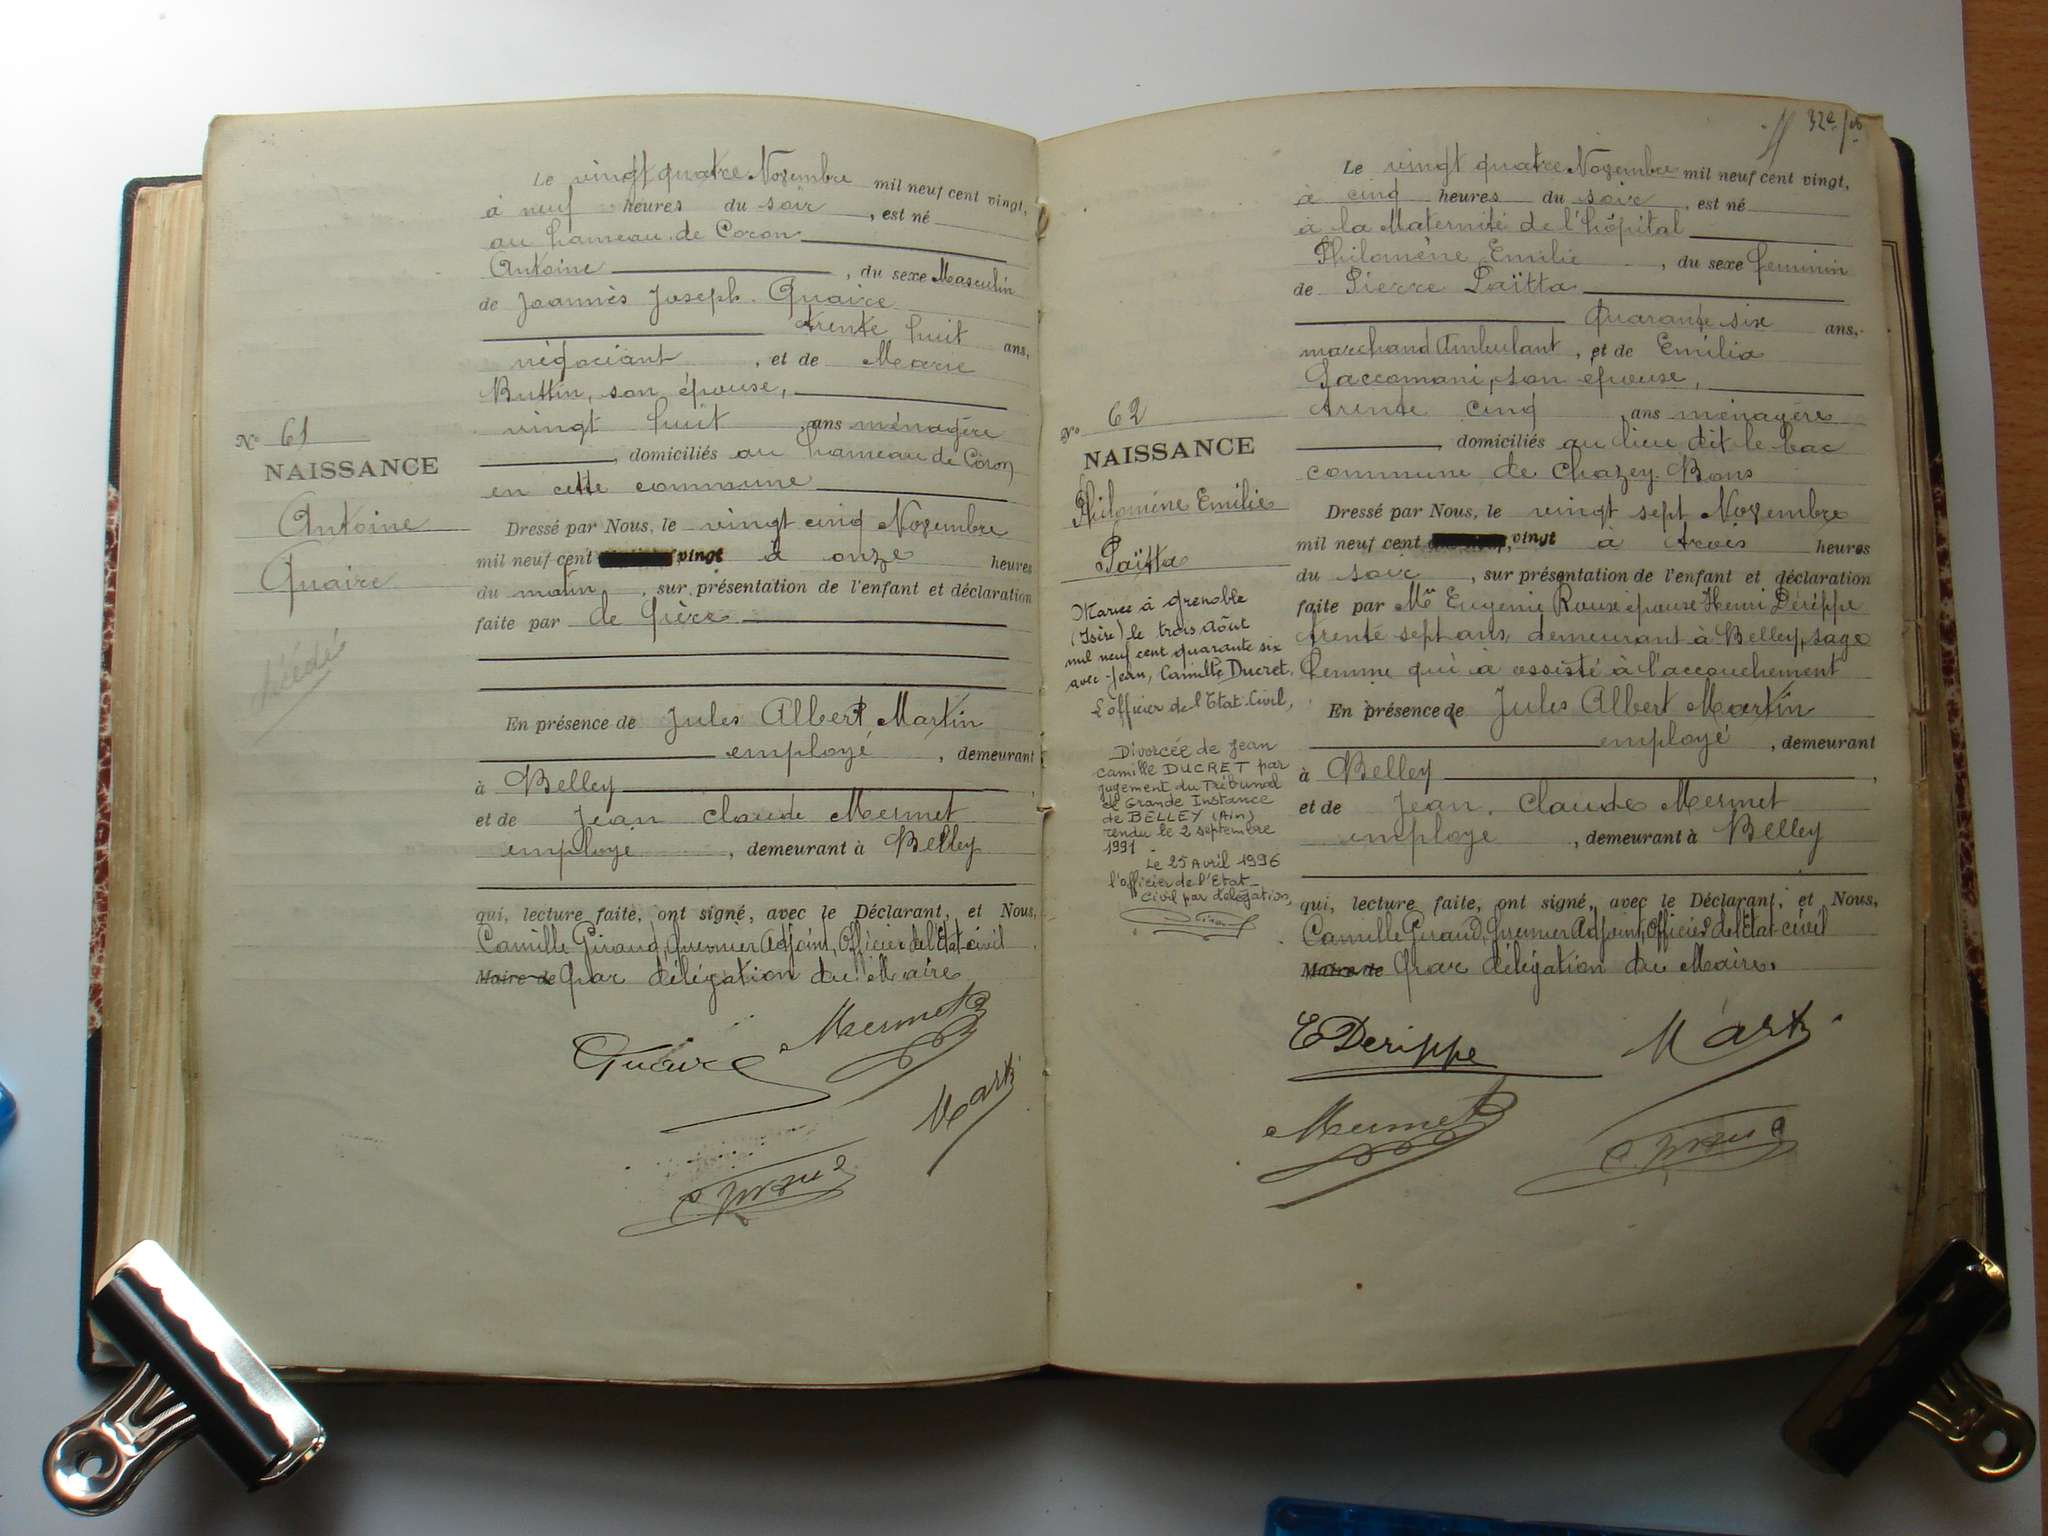 Le vingt quatre Novembre mil neuf cent vingt,
à neuf heures du soir, est né
au hameau de Coron
Antoine, du sexe Masculin
de Joannès Joseph Quaire
trente huit ans,
négociant, et de Marie
Buttin, son épouse,
vingt huit ans ménagère
, domiciliés au hameau de Coron
en cette commune
N° 61
NAISSANCE
Antoine
Quaire
décédé
Dressé par Nous, le vingt cinq Novembre
mil neuf cent vingt à onze heures
du matin, sur présentation de l'enfant et déclaration
faite par de Père
En présence de Jules Albert Martin
employé, demeurant
à Belley,
et de Jean Claude Mermet
employé, demeurant à Belley
qui, lecture faite, ont signé, avec le Déclarant, et Nous,
Camille Giraud, premier Adjoint, Officier de l'Etat civil
Maire de par délégation du Maire
Quaire Mermet
Marti
C. Giraud
32e
Le vingt quatre Novembre mil neuf cent vingt,
à cinq heures du soir, est né
à la Maternité de l'hôpital
Philomène Emilie, du sexe feminin
de Pierre Païtta
Quarante six ans,
marchand Ambulant, et de Emilia
Paccomani, son épouse,
trente cinq, ans ménagère
domiciliés au lieu dit le bac
commune de Chazey-Bons
N° 62
NAISSANCE
Philomène Emilie
Païtta
Mariée à Grenoble
(Isère) le trois Août
mil neuf cent quarante six
avec Jean, Camille Ducret.
L'officier de l'Etat-Civil,
Divorcée de Jean
camille DUCRET par
jugement du Tribunal
de Grande Instance
de BELLEY (Ain)
rendu le 2 septembre
1991
Le 25 Avril 1996
l'officier de l'Etat-
Civil par délégation,
Dressé par Nous, le vingt sept Novembre
mil neuf cent vingt à trois heures
du soir, sur présentation de l'enfant et déclaration
faite par Me Eugenie Roux épouse Henri Dérippe
trente sept ans, demeurant à Belley, sage
femme qui a assisté à l'accouchement
En présence de Jules Albert Martin
employé, demeurant
à Belley,
et de Jean Claude Mermet
employe, demeurant à Belley
qui, lecture faite, ont signé, avec le Déclarant, et Nous,
Camille Giraud, premier Adjoint, Officier de l'Etat civil
Maire de par délégation du Maire.
E Derippe Marti
Mermet C. Giraud